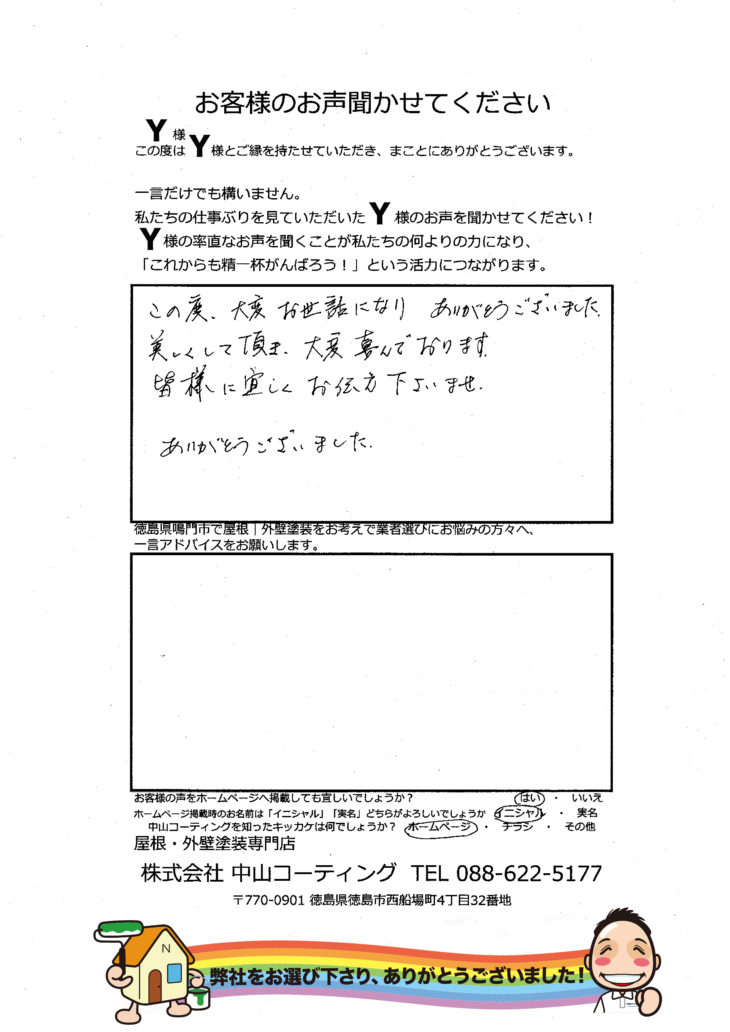 お客様のお声聞かせてください
Y 様
この度は Y 様とご縁を持たせていただき、まことにありがとうございます。
一言だけでも構いません。
私たちの仕事ぶりを見ていただいた Y 様のお声を聞かせてください！
Y 様の率直なお声を聞くことが私たちの何よりの力になり、
「これからも精一杯がんばろう！」という活力につながります。
この度、大変お世話になり ありがとうございました。
美しくして頂き、大変喜んでおります。
皆様に宜しくお伝え下さいませ。
ありがとうございました。
徳島県鳴門市で屋根｜外壁塗装をお考えで業者選びにお悩みの方々へ、
一言アドバイスをお願いします。
お客様の声をホームページへ掲載しても宜しいでしょうか？ はい ・ いいえ
ホームページ掲載時のお名前は「イニシャル」「実名」どちらがよろしいでしょうか イニシャル ・ 実名
中山コーティングを知ったキッカケは何でしょうか？ ホームページ ・ チラシ ・ その他
屋根・外壁塗装専門店
株式会社 中山コーティング TEL 088-622-5177
〒770-0901 徳島県徳島市西船場町4丁目32番地
N
弊社をお選び下さり、ありがとうございました！